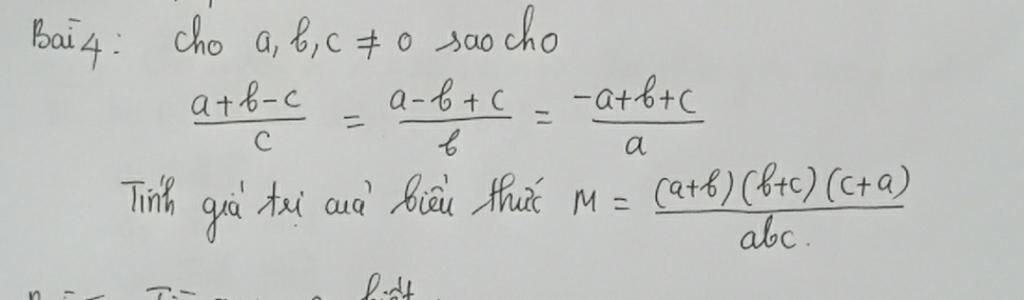 Bài 4: cho a, b, c ≠ 0 sao cho
(a+b-c)/c = (a-b+c)/b = (-a+b+c)/a
Tính giá trị của biểu thức M = (a+b)(b+c)(c+a)/abc.